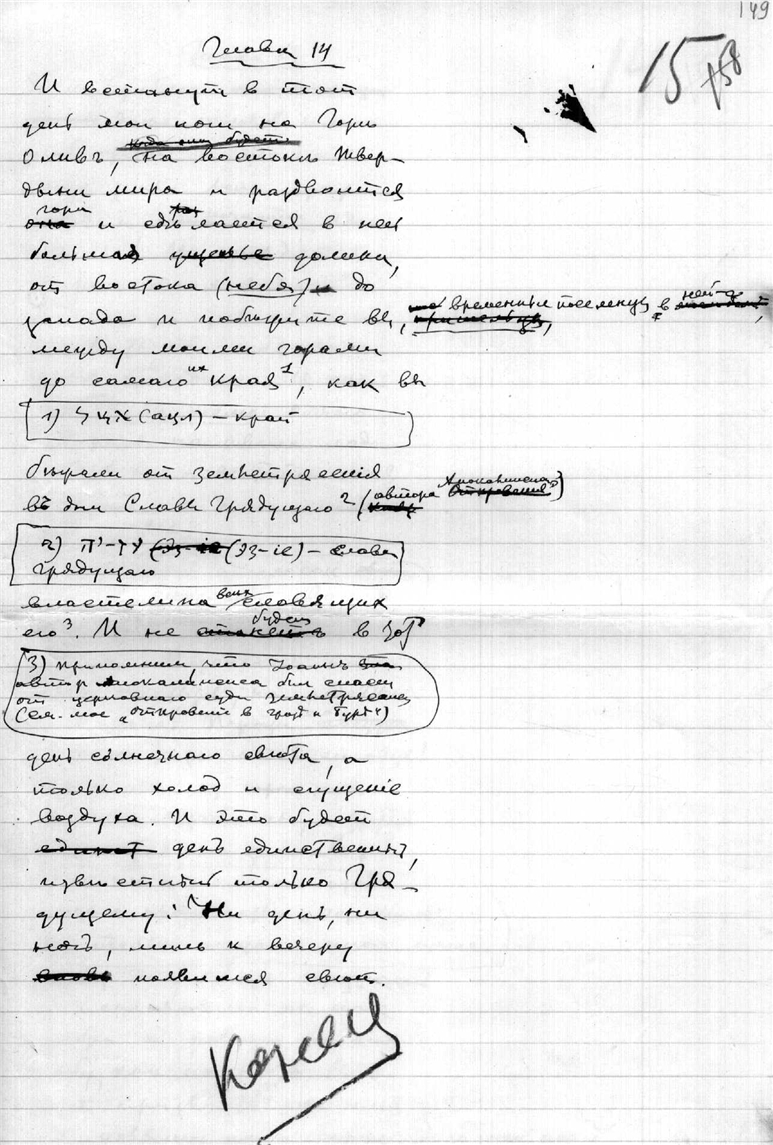 149
15
158
Глава 14
И встанут в тот
день мои ноги на Горѣ
когда они будетъ
Оливъ, на востокѣ твер-
дыни мира и раздвоится
гора
она и сдѣлается в ней
большая ущелье долина,
от востока (неба) и до
запада и побѣжите вы, временные поселенцы в ней,
пришельцы,
между моими горами
до самаго их края 1, как вы
1) (ацл) – край
бѣжали от землетрясенія
въ дни Славы Грядущаго 2 (автора Апокалипсиса)
Откровенія
2) (Эз-іе) – слава
грядущаго
властелина всех славящих
его 3. И не будет в тот
3) припомним, что Іоаннъ
автор Апокалипсиса был спасен
от церковнаго суда землетрясением
(см. мое „Откровеніе в грозѣ и бурѣ“)
день солнечнаго свѣта, а
только холод и сгущеніе
воздуха. И это будет
день единственный,
извѣстный только Гря-
дущему: Ни день, ни
ночь, лишь к вечеру
вновь появится свѣт.
Конец